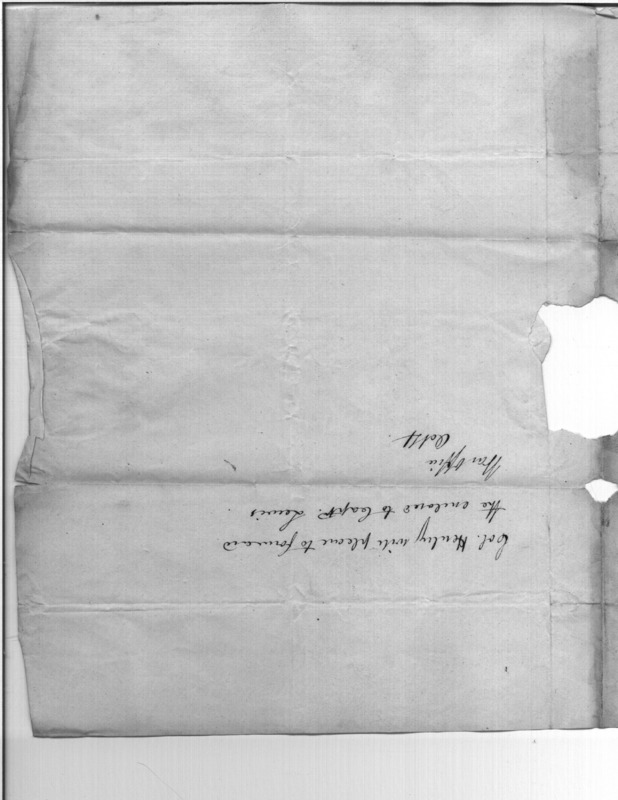 Col. Henley will please to forward
the enclosed to Capt. Lewis.
War Office
Oct 4.